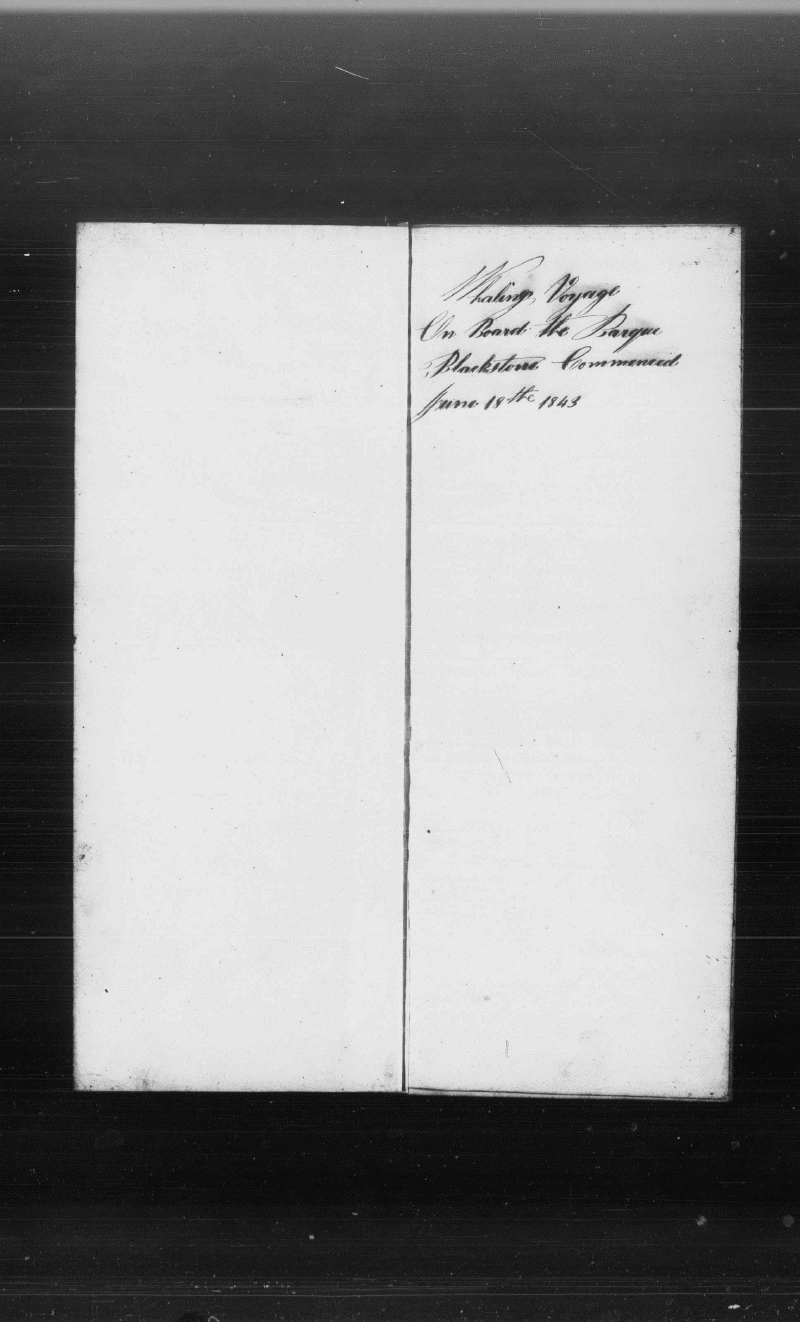 Whaling Voyage
On Board the Barque
Blackstone Commenced
June 18the 1843